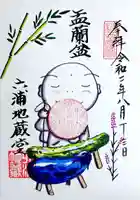 奉拝 令和二年八月十
盂蘭盆
六浦地蔵堂